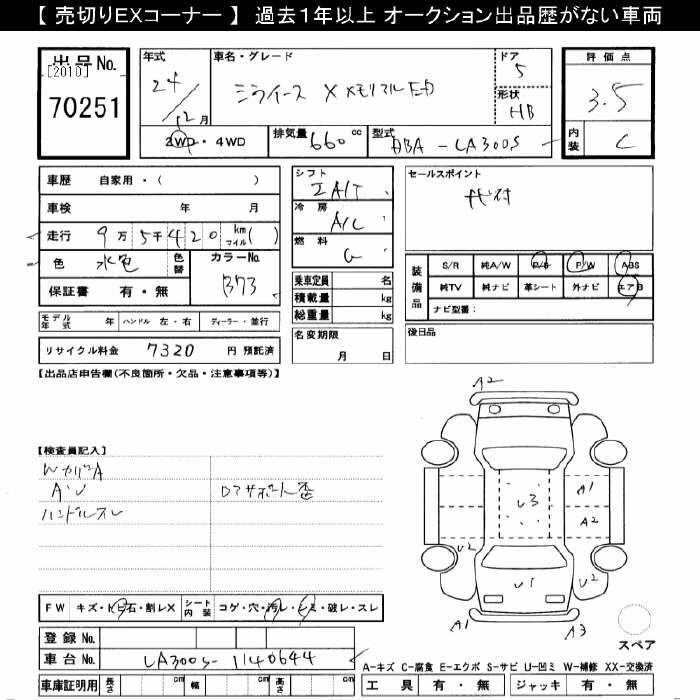 【 売切りEXコーナー 】 過去1年以上 オークション出品歴がない車両
出品No.
[2010]
70251
年式
24/12月
2WD・4WD
車名・グレード
ミライース X メモリアルED
ドア
5
形状
HB
排気量 660 cc
型式 DBA-LA300S
評価点
3.5
内装 C
車歴 自家用・( )
車検 年 月
走行 9万5千420 km マイル( )
色 水色 色替
カラーNo. B73
保証書 有・無
シフト
IA/T
冷房
A/C
燃料
G
乗車定員 名
積載量 kg
総重量 kg
名変期限
月 日
セールスポイント
装備品
S/R 純A/W P/S P/W ABS
純TV 純ナビ 革シート 外ナビ エアB
ナビ型番:
後日品
モデル年式 年 ハンドル 左・右 ディーラー・並行
リサイクル料金 7320 円 預託済
【出品店申告欄(不良箇所・欠品・注意事項等)】
【検査員記入】
WカバーA
AU
ハンドルスレ
A2
A1
U3
A2
U2
U1
U2
A1
A3
スペア
FW キズ・トビ石・割レX シート内装 コゲ・穴・汚レ・シミ・破レ・スレ
登録No.
車台No. LA300S-1140644
車庫証明用 長さ cm 幅 cm 高さ cm
A-キズ C-腐食 E-エクボ S-サビ U-凹ミ W-補修 XX-交換済
工具 有・無 ジャッキ 有・無